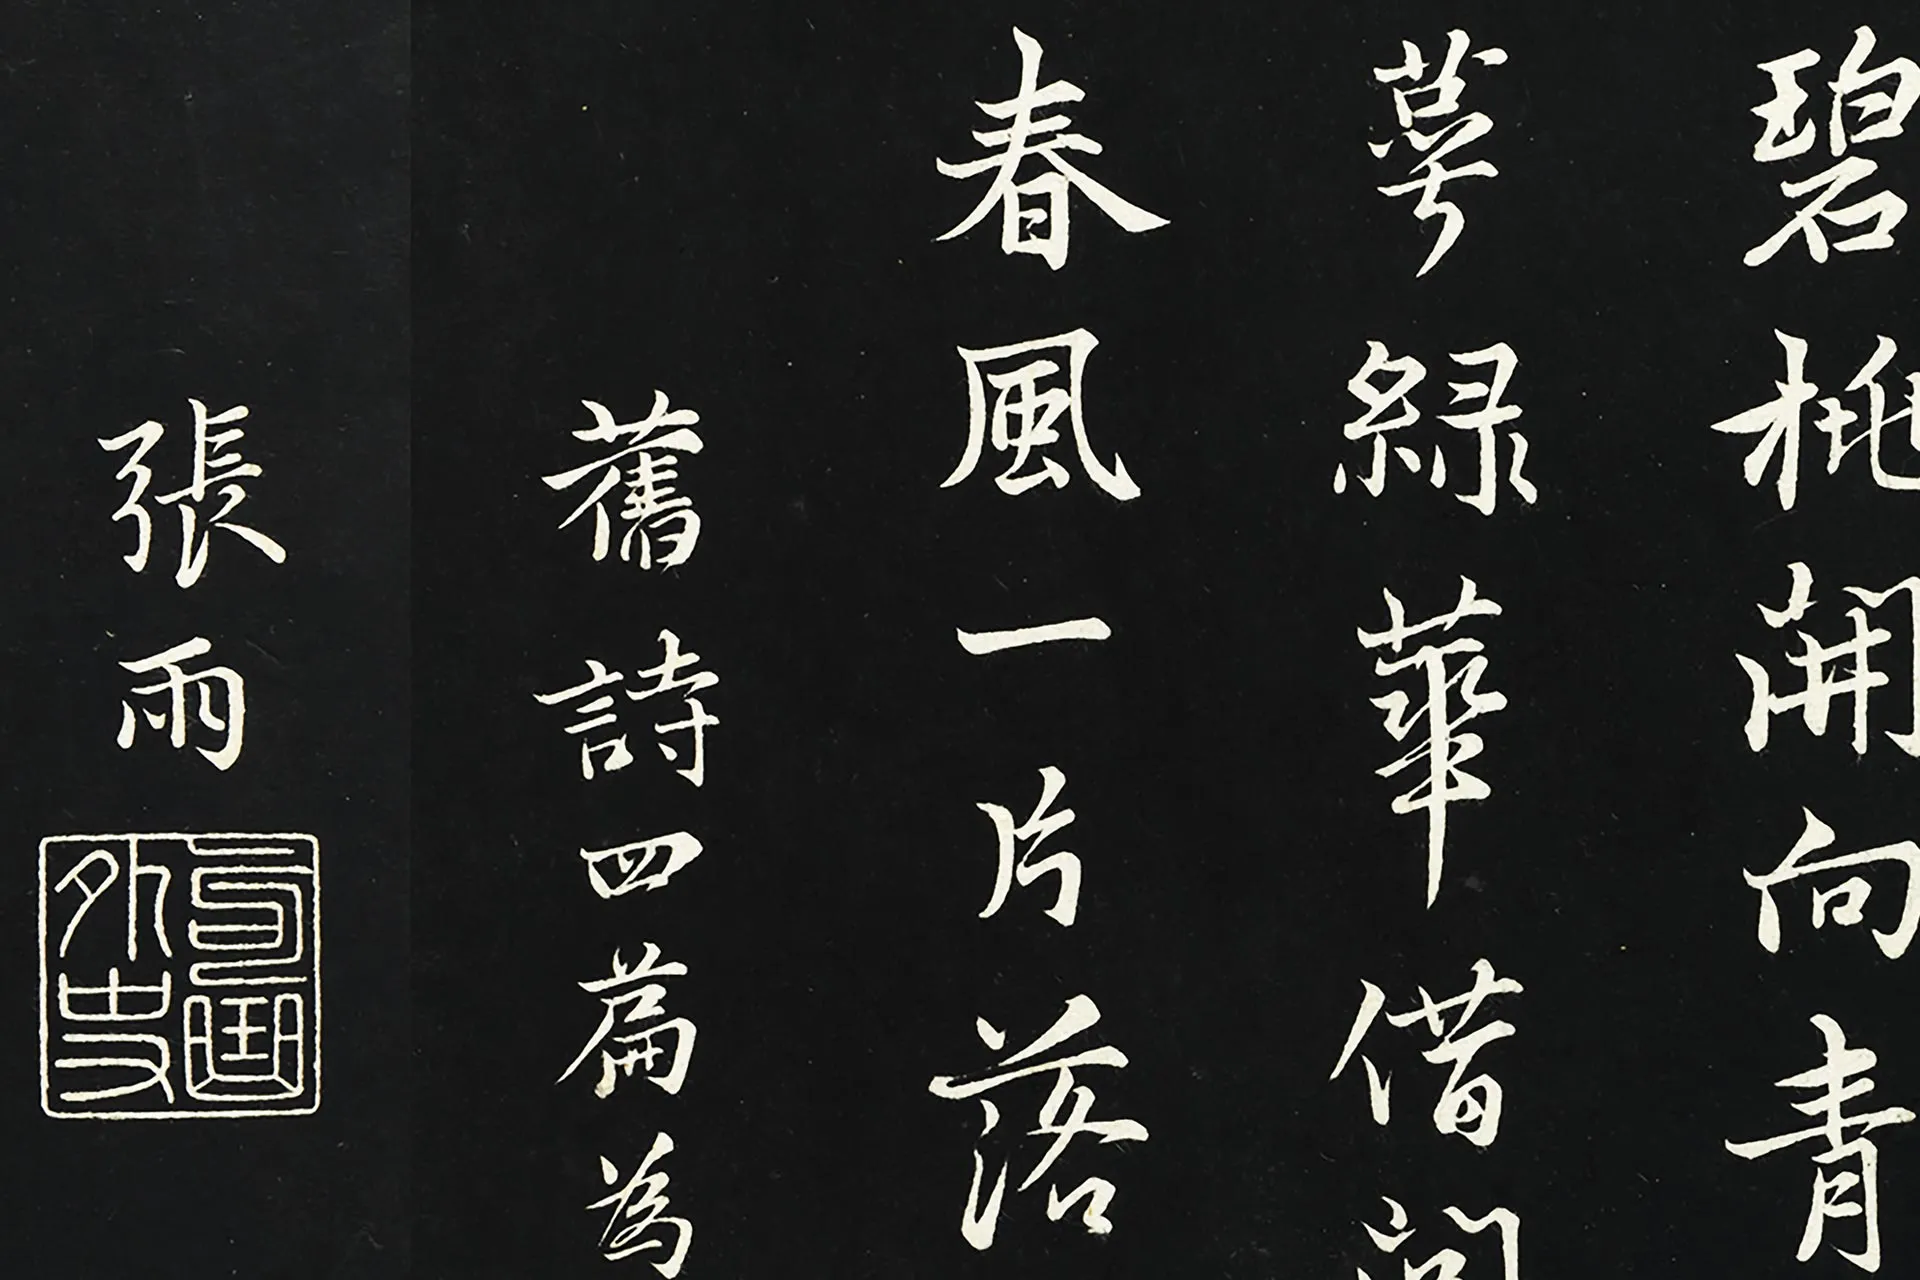 碧桃開向青
萼緑華借問
春風一片落
舊詩四篇為
張雨
句曲外史